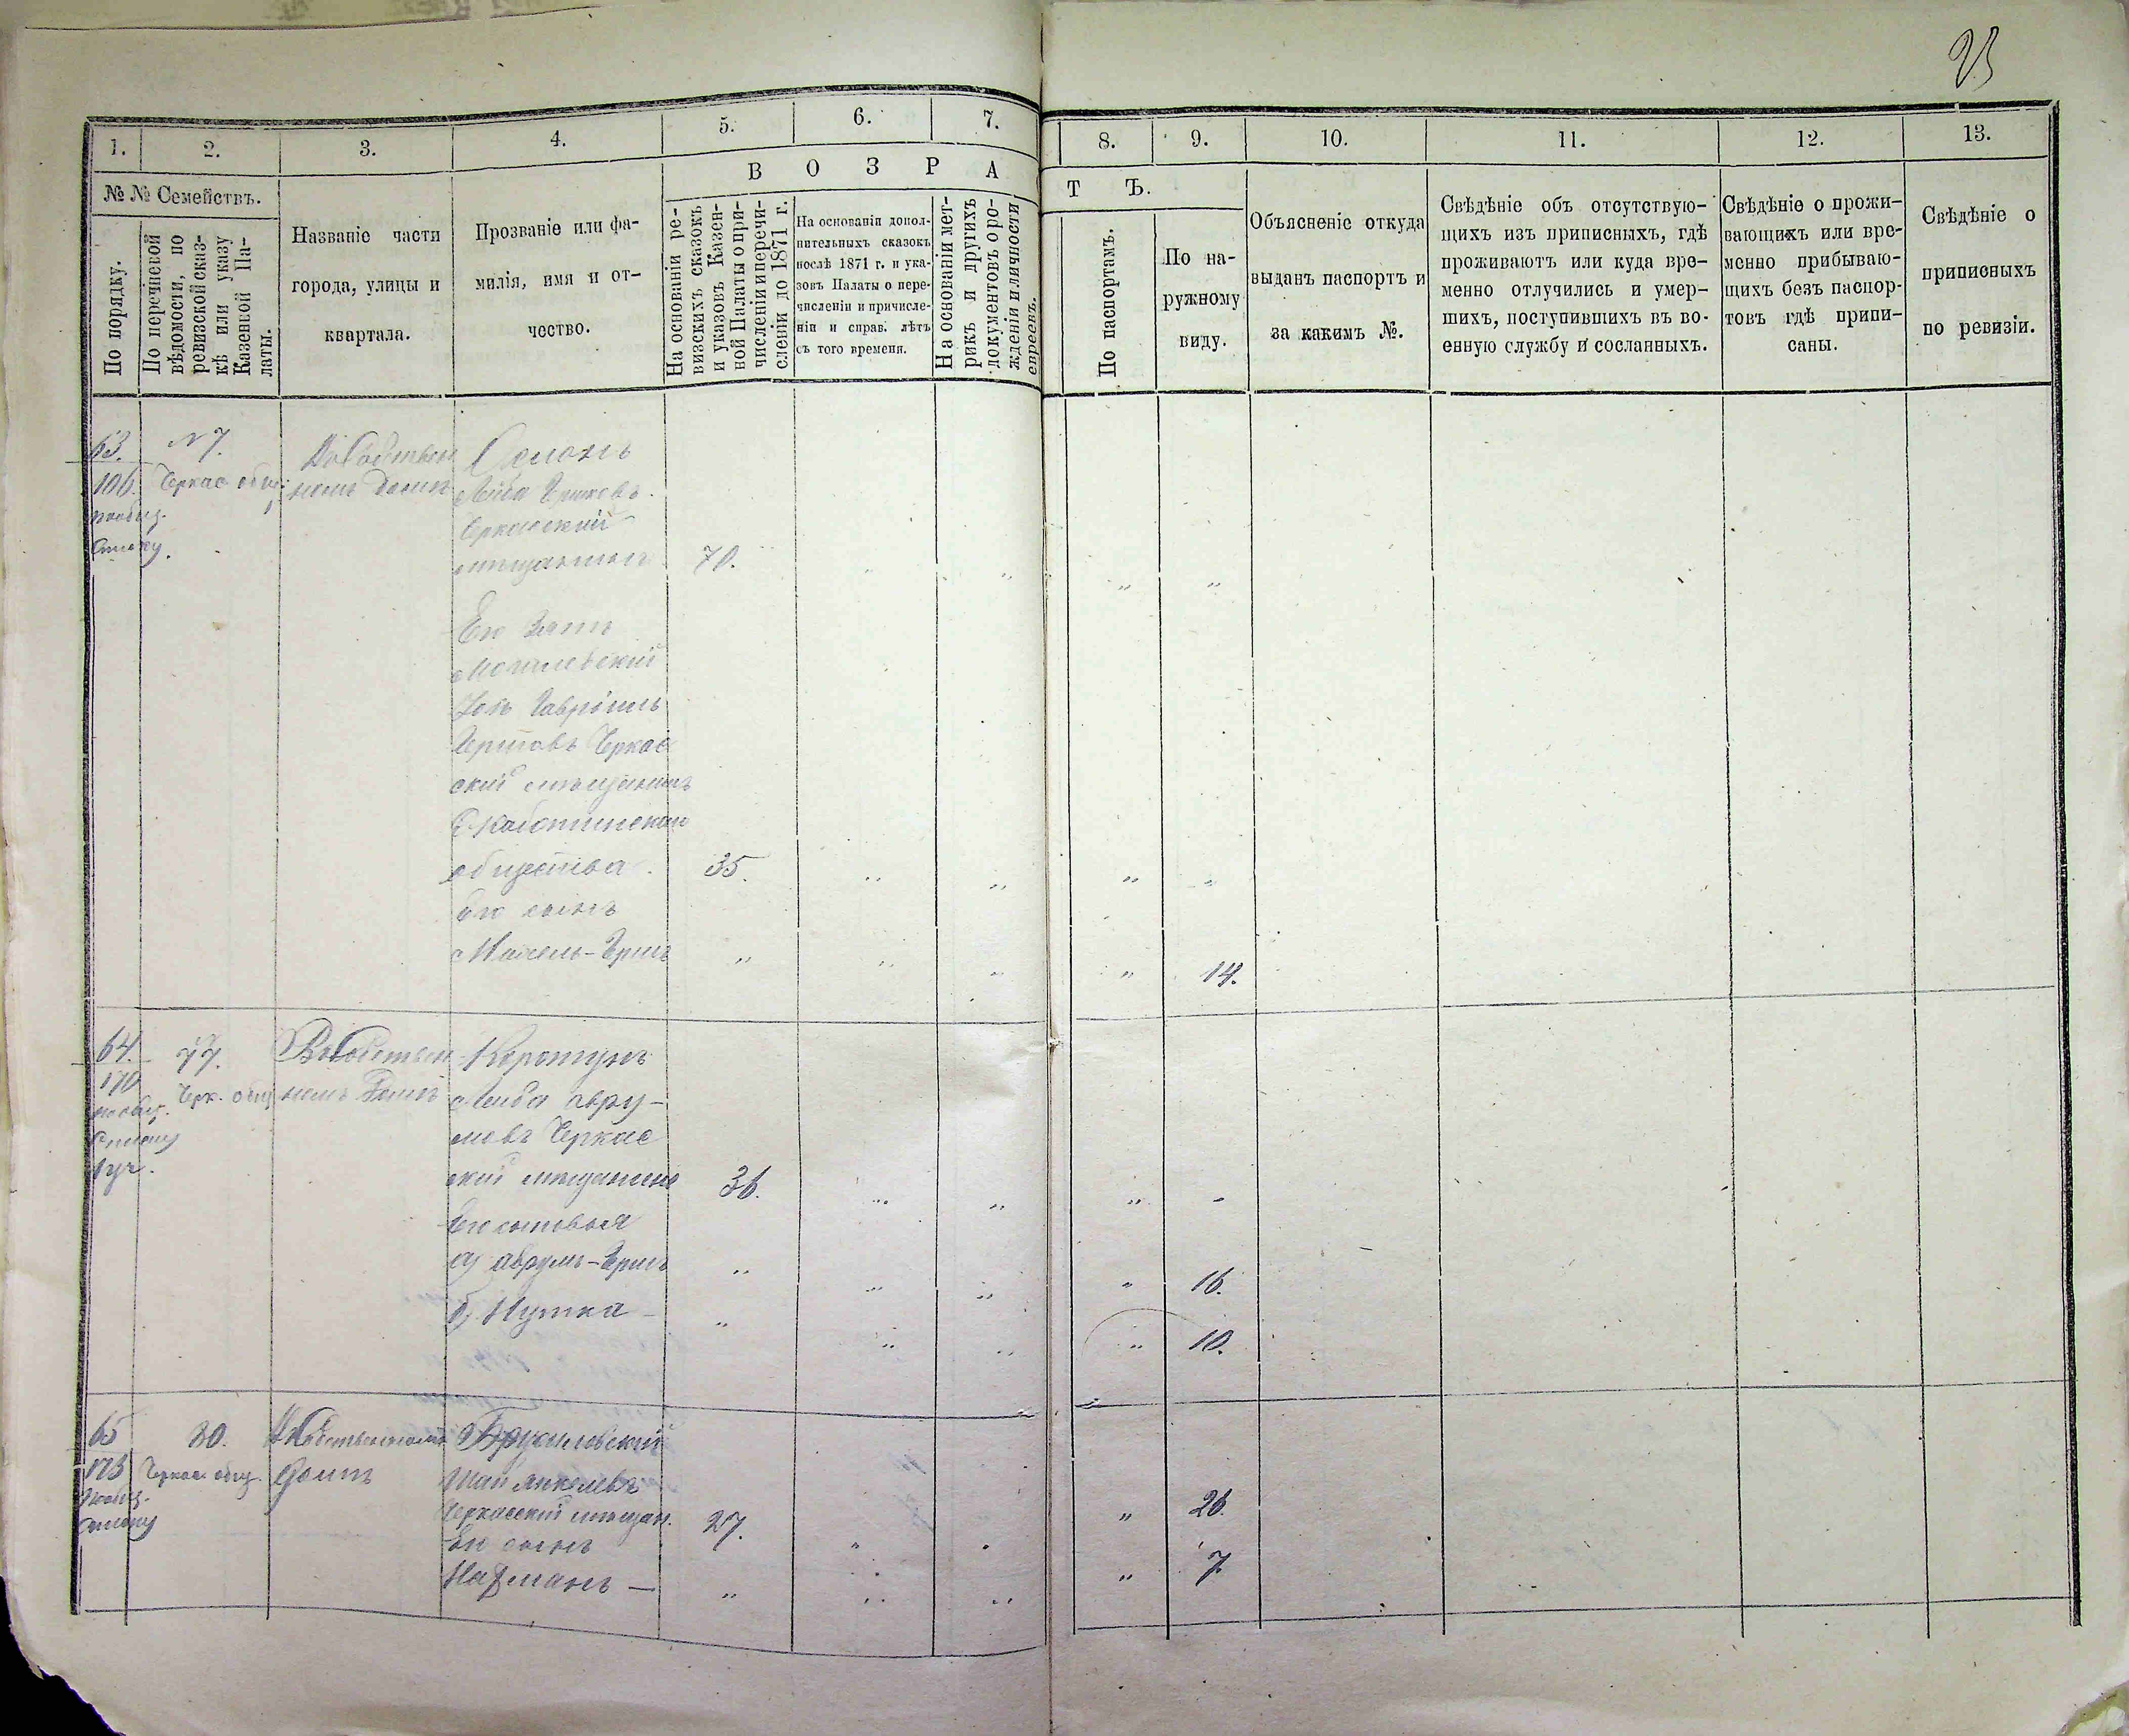 23
1. 2. 3. 4. 5. 6. 7. 8. 9. 10. 11. 12. 13.
В О З Р А Т Ъ.
№ № Семействъ.
По порядку.
По перечневой
вѣдомости, по
ревизской сказ-
кѣ или указу
Казенной Па-
латы.
Названіе части
города, улицы и
квартала.
Прозваніе или фа-
милія, имя и от-
чество.
На основаніи ре-
визскихъ сказокъ
и указовъ Казен-
ной Палаты о при-
численіи и перечи-
слени до 1871 г.
На основаніи допол-
нительныхъ сказокъ
послѣ 1871 г. и ука-
зовъ Палаты о пере-
численіи и причисле-
ніи и справ. лѣтъ
съ того времени.
На основаніи мет-
рикъ и другихъ
документовъ о ро-
жденіи и личности
евреевъ.
По паспортамъ.
По на-
ружному
виду.
Объясненіе откуда
выданъ паспортъ и
за какимъ №.
Свѣдѣніе объ отсутствую-
щихъ изъ приписныхъ, гдѣ
проживаютъ или куда вре-
менно отлучились и умер-
шихъ, поступившихъ въ во-
енную службу и сосланныхъ.
Свѣдѣніе о прожи-
вающихъ или вре-
менно прибываю-
щихъ безъ паспор-
товъ гдѣ припи-
саны.
Свѣдѣніе о
приписныхъ
по ревизіи.
63. N 7.
106. Черкас общ.
по общ.
Списку.
Въ Собствен
номъ домѣ
Лейба Гершковъ
Черкасскій
мѣщанинъ 70.
Его Зять
Могилевскій
Гавріилъ
Черкас
скій мѣщанинъ
общества. 35.
Его сынъ
14.
64. 77.
170 Черк. общ
по общ.
Списку
1 уч.
Въ Собствен
номъ домѣ
Коротунъ
Лейба Авру-
мовъ Черкас
скій мѣщанинъ 36.
Его сыновья
а) Аврумъ-Гершъ 16.
б) Нутка - 10.
65 80.
173 Черкас. общ.
по общ.
Списку
Въ Собственномъ
домѣ
Брусиловскій
Шай Янкелевъ
Черкасскій мѣщан. 27. 26.
Его сынъ
Нахманъ — 7